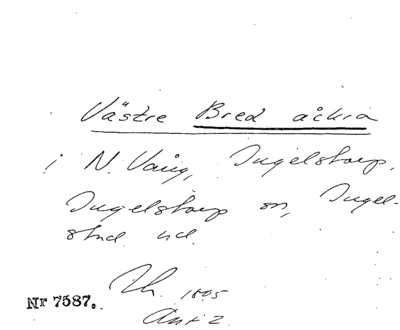 Västre Bred åckra
i N. Vång, Ingelstorp,
Ingelstorp sn, Ingel-
stad hd.
1805
Nr 7587.
Akt 2